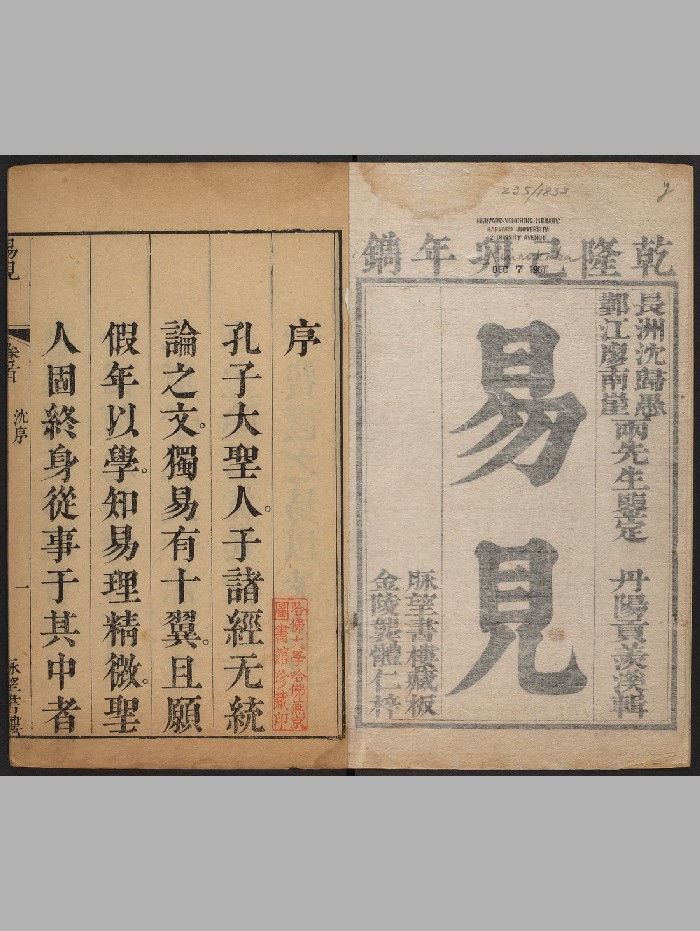 235/1833
HARVARD-YENCHING LIBRARY
HARVARD UNIVERSITY
2 DIVINITY AVENUE
DEC 7 1967
乾隆己卯年鐫
長洲沈歸愚
鄞江廖南崖
兩先生鑒定
丹陽貢羨溪輯
易見
脉望書樓藏板
金陵龔體仁梓
序
孔子大聖人。于諸經无統
論之文。獨易有十翼。且願
假年以學。知易理精微。聖
人固終身從事于其中者
哈佛大學哈佛燕京
圖書館珍藏印
易見
卷首
沈序
一
脉望書樓